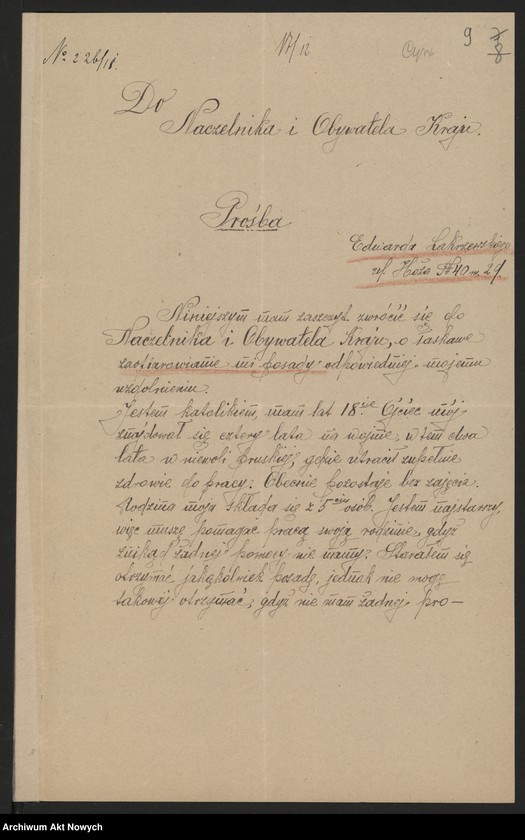 № 226/18.
17/12
9
Do
Naczelnika i Obywatela Kraju.
Prośba
Edwarda Zakrzewskiego
ul. Hoża № 40 m. 29.
Niniejszym mam zaszczyt zwrócić się do
Naczelnika i Obywatela Kraju, o łaskawe
zaofiarowanie mi posady odpowiedniej mojemu
uzdolnieniu.
Jestem katolikiem, mam lat 18ie. Ojciec mój
znajdował się cztery lata na wojnie, w tem dwa
lata w niewoli pruskiej, gdzie utracił zupełnie
zdrowie do pracy. Obecnie pozostaje bez zajęcia.
Rodzina moja składa się z 5ciu osób. Jestem najstarszy,
więc muszę pomagać pracą swoją rodzinie, gdyż
znikąd żadnej pomocy nie mamy. Starałem się
otrzymać jakąkolwiek posadę, jednak nie mogę
takowej otrzymać, gdyż nie mam żadnej pro—
Archiwum Akt Nowych